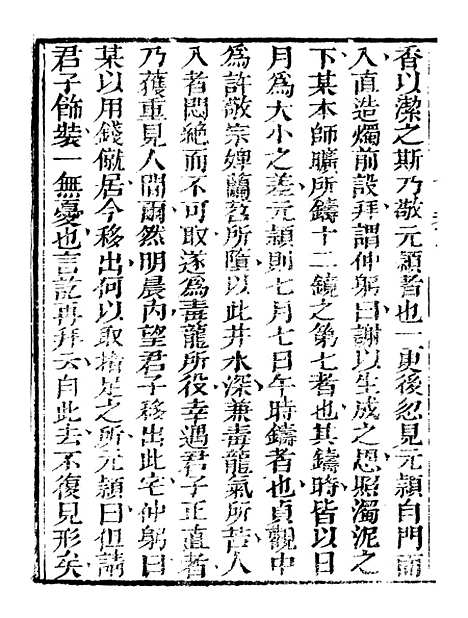 香以潔之斯乃敬元頴者也一更後忽見元頴自門而
入直造燭前設拜謂仲躬曰謝以生成之恩照濁泥之
下某本師曠所鑄十二鏡之第七者也其鑄時皆以日
月為大小之差元頴則七月七日午時鑄者也貞觀中
為許敬宗婢蘭苕所墮以此井水深兼毒龍氣所苦人
入者悶絶而不可取遂為毒龍所役幸遇君子正直者
乃獲重見人間爾然明晨內望君子移出此宅仲躬曰
某以用錢僦居今移出何以取措足之所元頴曰但請
君子餙裝一無憂也言訖再拜云自此去不復見形矣